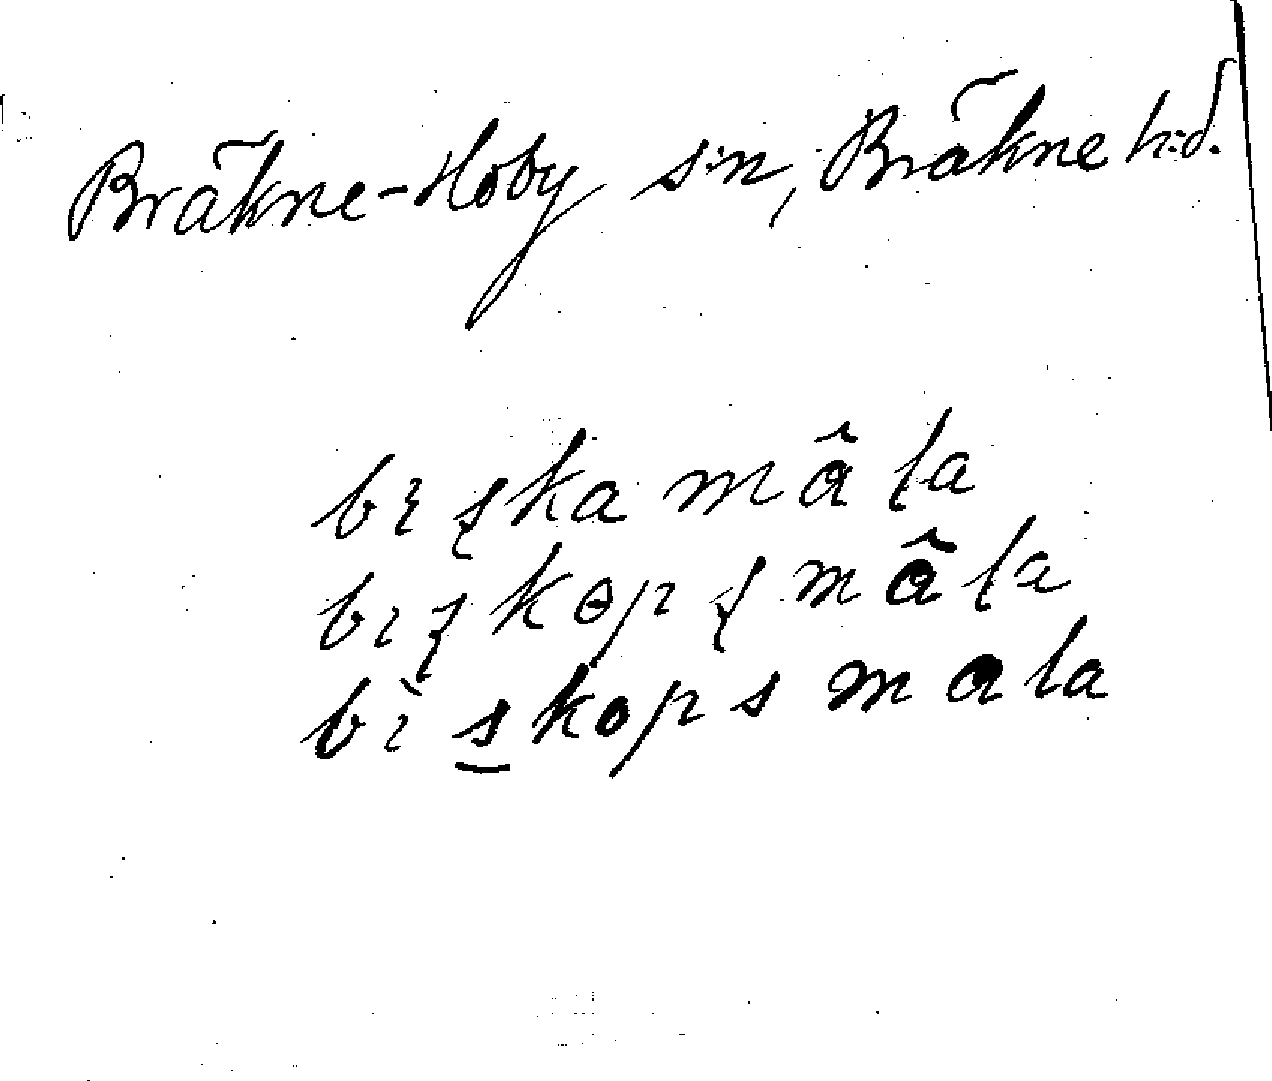 Bräkne-Hoby s:n, Bräkne h:d.
bıskamâla
bıskopsmâla
bìskopsmala